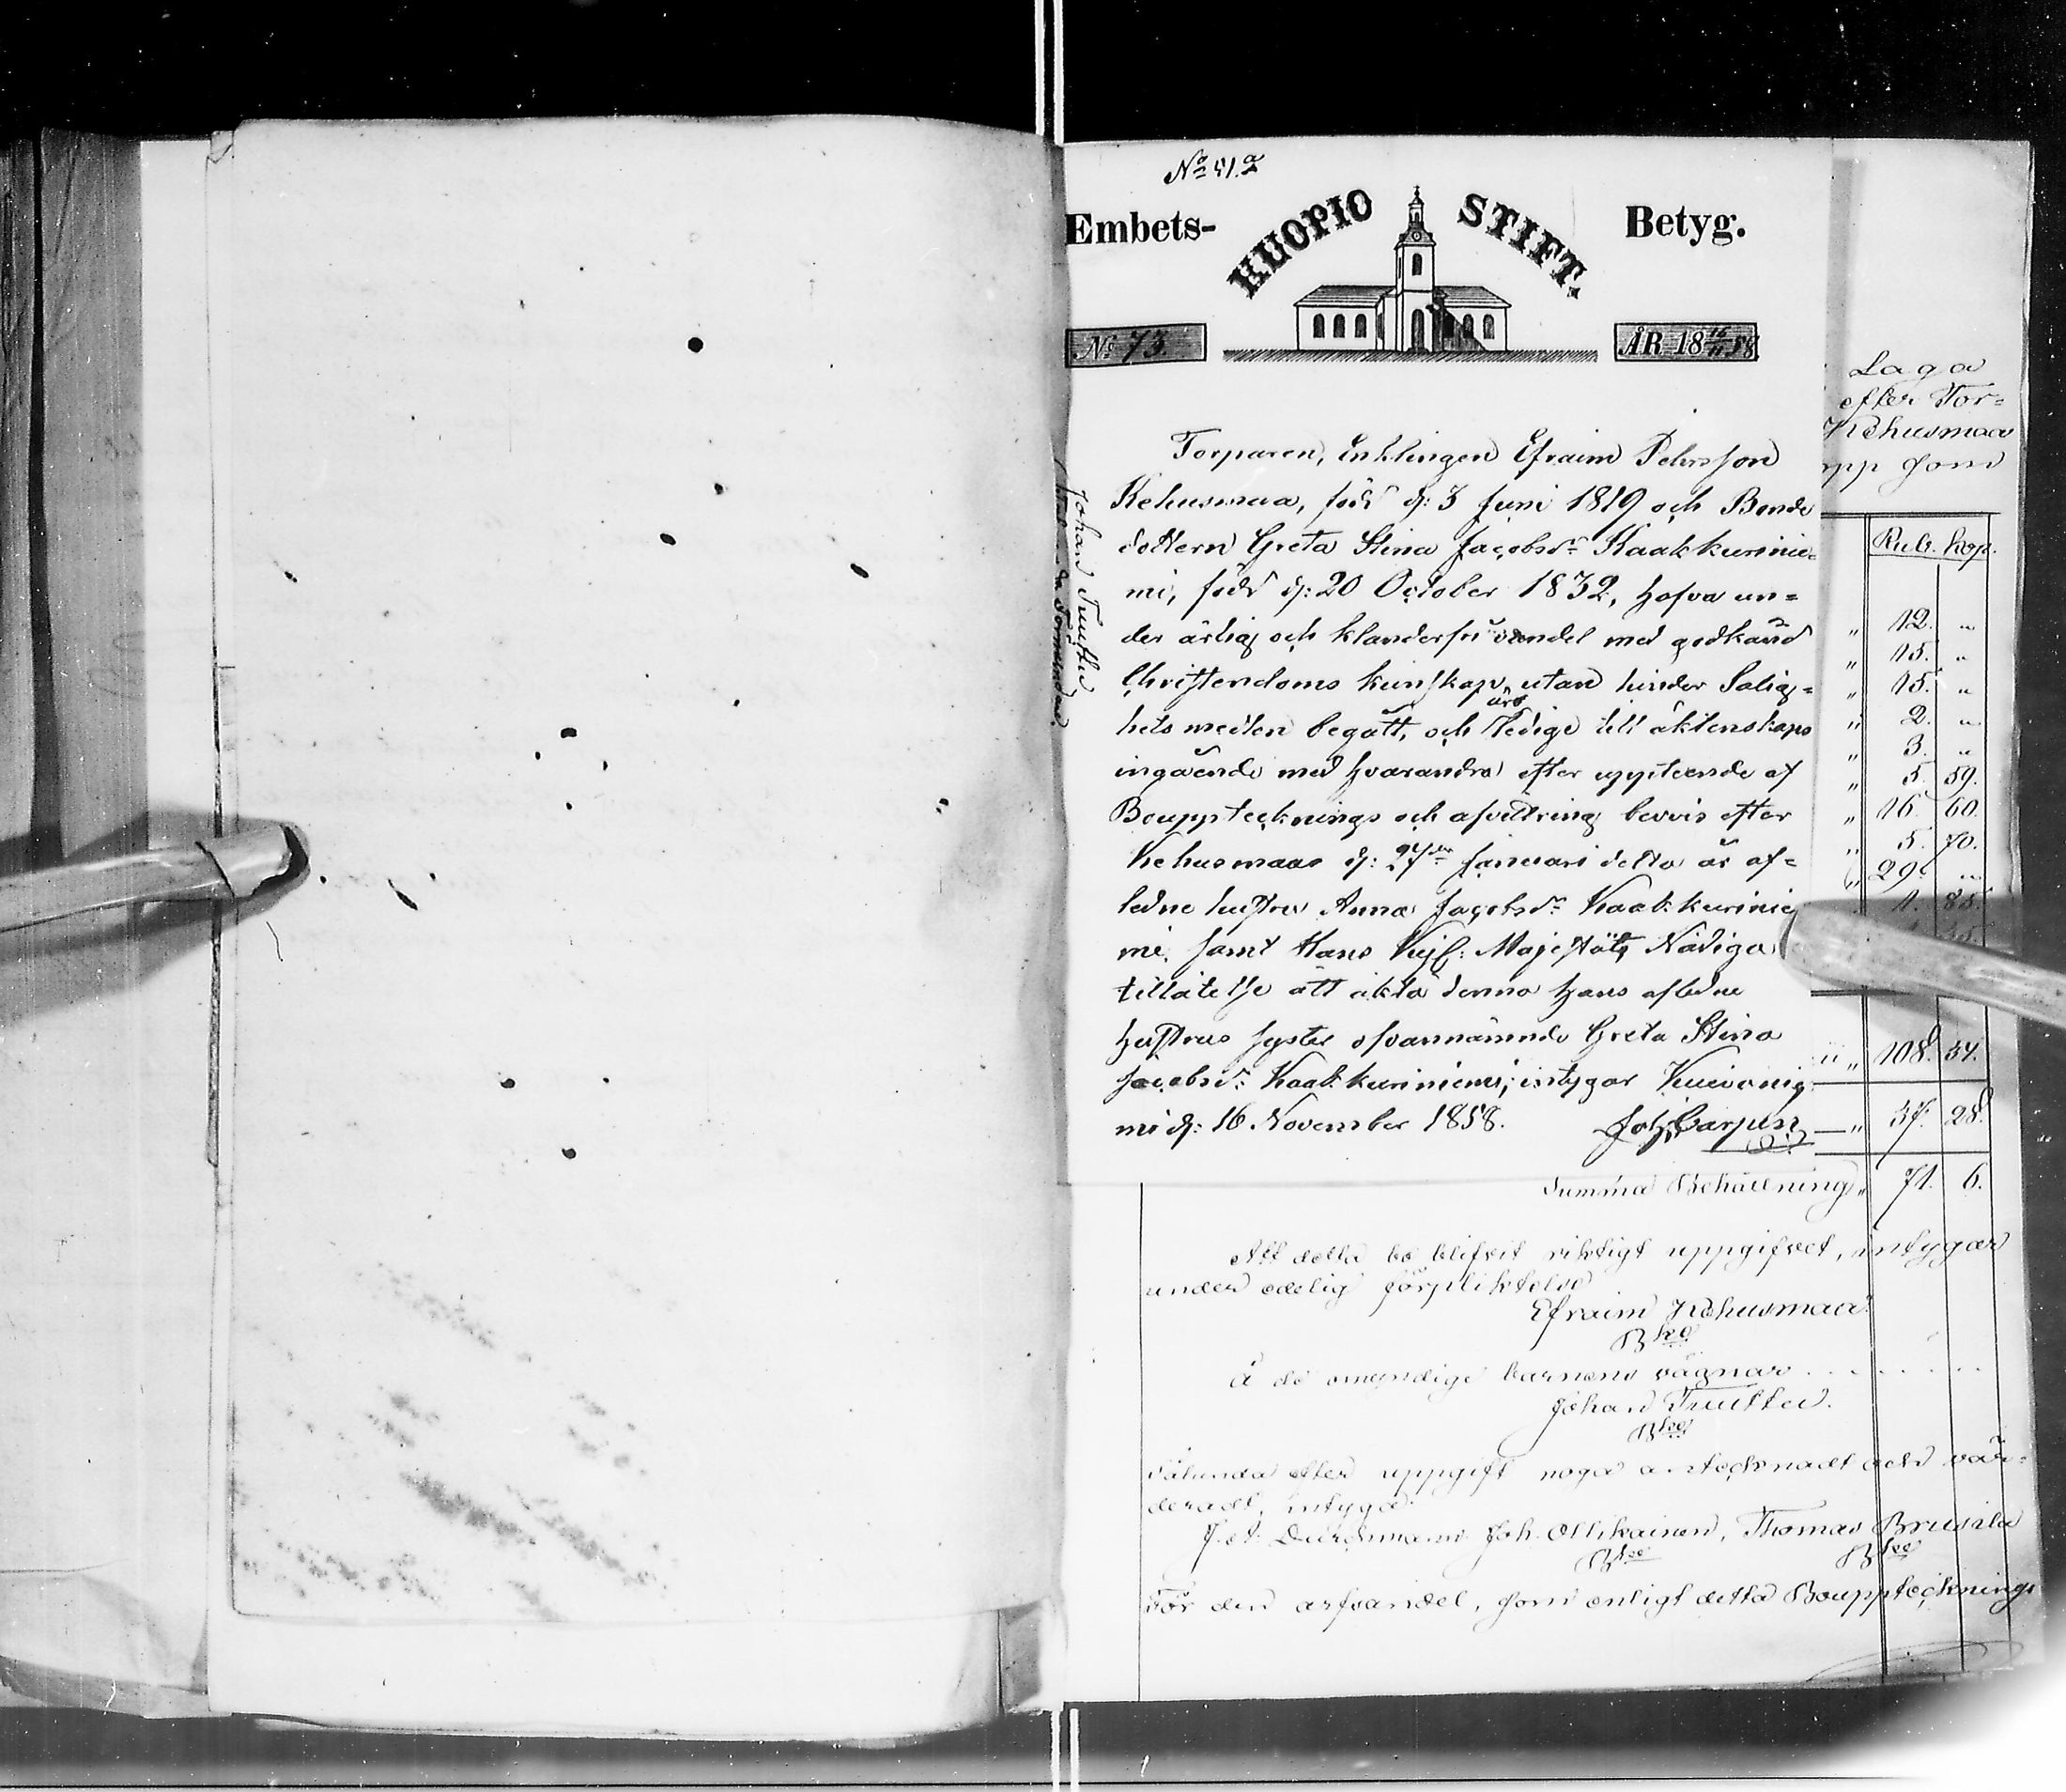 No 51.a
Embets- KUOPIO STIFT. Betyg.
No 73. ÅR 18 16/11 58
Torparen, Enklingen Efraim Pehrsson
Kehusmaa, född d: 3 Juni 1819 och Bonde
dottern Greta Stina Jacobsdr Kaakkurinie-
mi, född d: 20 October 1832, hafva un-
der ärlig och klanderfri vandel med godkänd
Christendoms kunskap, utan hinder Salig-
hets medlen begått, och äro ledige till äktenskaps
ingående med hvarandra efter uppteende af
Bouppteckнings och afvittring bevis efter
Kehusmaas d: 27de Januari detta år af-
ledne hustru Anna Jacobsdr Kaakkurinie
mi, samt Hans Kejs: Majestäts Nådiga
tillåtelse att äkta denna hans aflidne
hustrus syster ofvannämnde Greta Stina
Jacobsdr Kaakkuriniemi; intygar Kuivanie-
mi d: 16 November 1858. Joh. Carpen
Johan Tuutti
Laga
efter Tor=
Kehusmaa
upp som
Rub. kop.
" 12. "
" 15. "
" 15. "
" 2. "
" 3. "
" 5. 59.
" 16. 60.
" 5. 70.
" 29. "
1. 85.
" 108. 34.
" 37. 28.
Summa Behållning " 71. 6.
Att detta bo blifvit riktigt uppgifvet, intygar
under edelig förpliktelse
Efraim Kehusmaa
å de omyndige barnens vägnar
Johan Tuuttu.
Sålunda efter uppgift noga antecknadt och vär=
deradt, intyga
Joh. Ollikainen, Thomas Brusila
För den arfvandel, som enligt detta Bouppteckнings